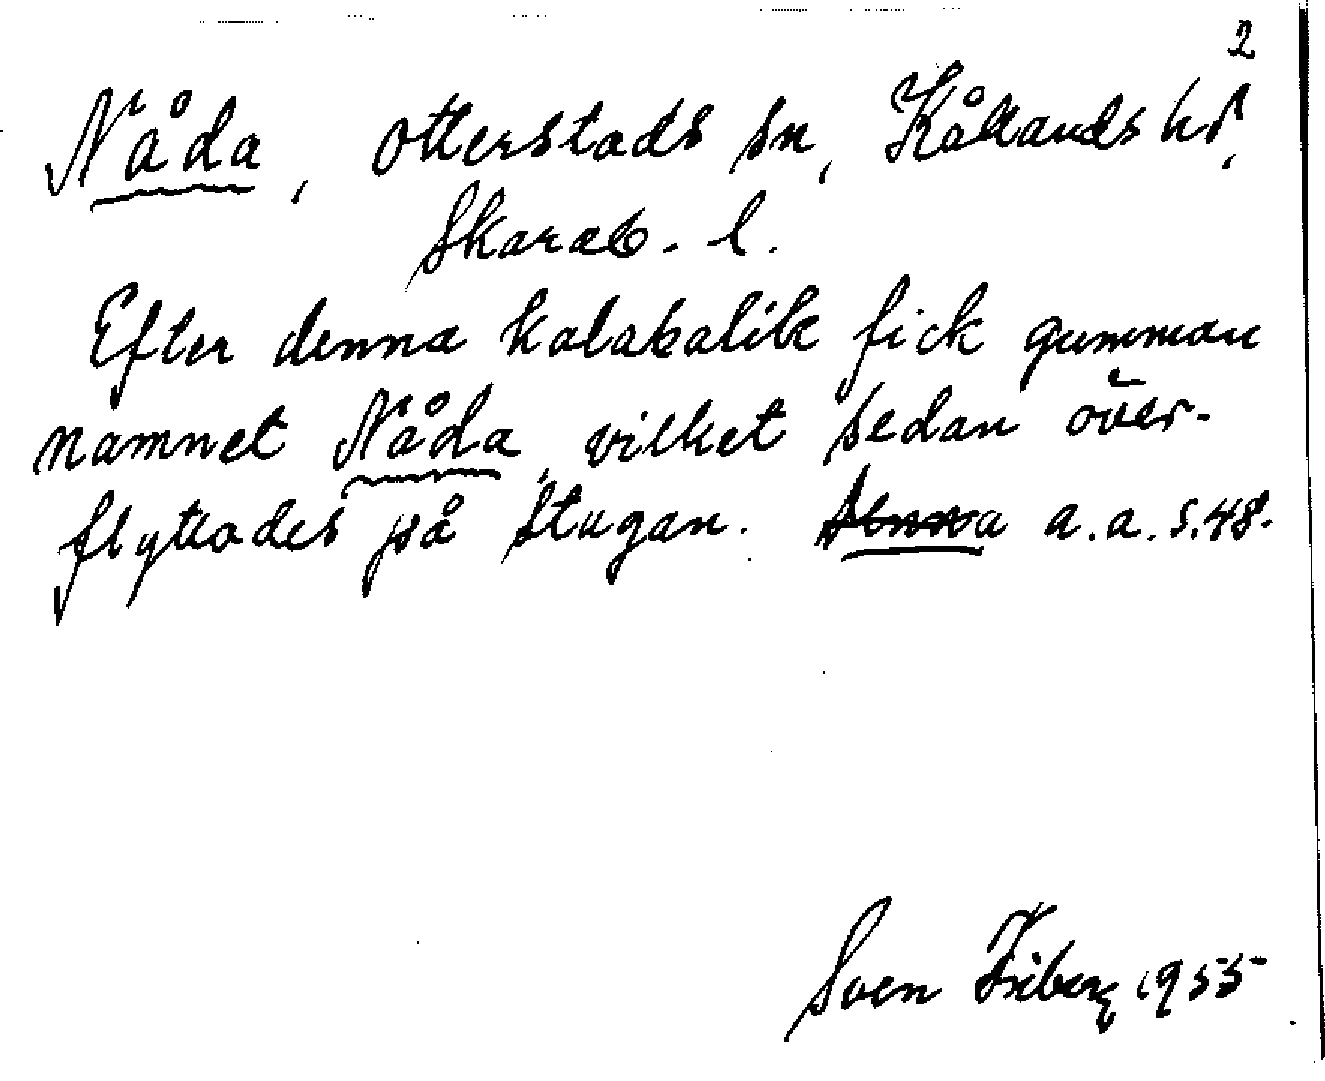 2
Nåda, Otterstads sn, Kållands hd,
Skarab. l.
Efter denna kalabalik fick gumman
namnet Nåda, vilket sedan över-
flyttades på stugan. a. a. s. 48.
Sven Friberg 1955